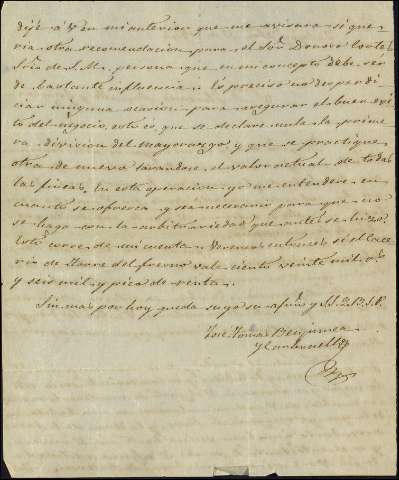 dije á V en mi anterior que me avisara si que-
ria otra recomendacion para el Sor Donoso Cortes
Sria de S.M. persona que en mi concepto debe ser
de bastante influencia. Es preciso no desperdi-
ciar ninguna ocasion para asegurar el buen exi-
to del negocio, esto es, que se declare nula la prime-
ra division del mayorazgo y que se practique
otra de nuevo sacandose el valor actual de todas
las fincas. En esta operacion yo me entenderé en
cuanto se ofrezca y sea necesario para que no
se haga con la arbitrariedad que antes se hizo.
Esto corre de mi cuenta. Veremos entonces si el Case-
rio de Torre del fresno vale ciento veinte mil, ó
y seis mil y pico de renta.
Sin mas por hoy queda suyo su afmo y S.S. Q.B.S.M.
José Tomas Benjumea
y Carbonell